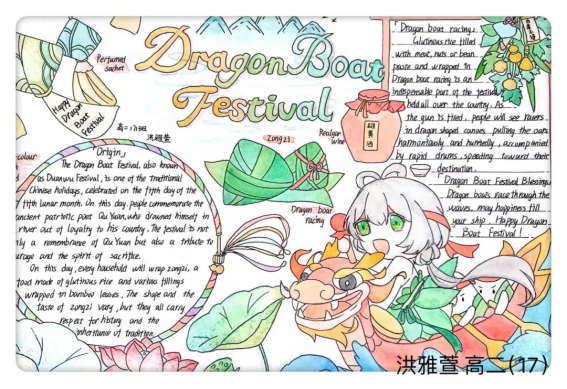 Dragon Boat
Festival
Perfumed
sachet
Happy
Dragon
Boat
Festival
高二17班
洪雅萱
colour
zongzi
Realgar
wine
雄
黄
酒
Dragon boat
racing
「Origin」
The Dragon Boat Festival, also known
as Duanwu Festival, is one of the traditional
Chinese holidays, celebrated on the fifth day of the
fifth lunar month. On this day, people commemorate the
ancient patriotic poet Qu Yuan, who drowned himself in
river out of loyalty to his country. The festival is not
only a remembrance of Qu Yuan but also a tribute to
courage and the spirit of sacrifice.
On this day, every household will wrap zongzi, a
food made of glutinous rice and various fillings
wrapped in bamboo leaves. The shape and the
taste of zongzi vary, but they all carry
respect for history and the
inheritance of tradition.
「Dragon boat racing」
Glutinous rice filled
with meat, nuts or bean
paste and wrapped in
Dragon boat racing is an
indispensable part of the festival,
held all over the country. As
the gun is fired, people will see racers
in dragon shaped canoes pulling the oars
harmoniously and hurriedly, accompanied
by rapid drums, speeding toward their
destination.
「Dragon Boat Festival Blessing」
Dragon boats race through the
waves, may happiness fill
your ship. Happy Dragon
Boat Festival!
洪雅萱 高二(17)